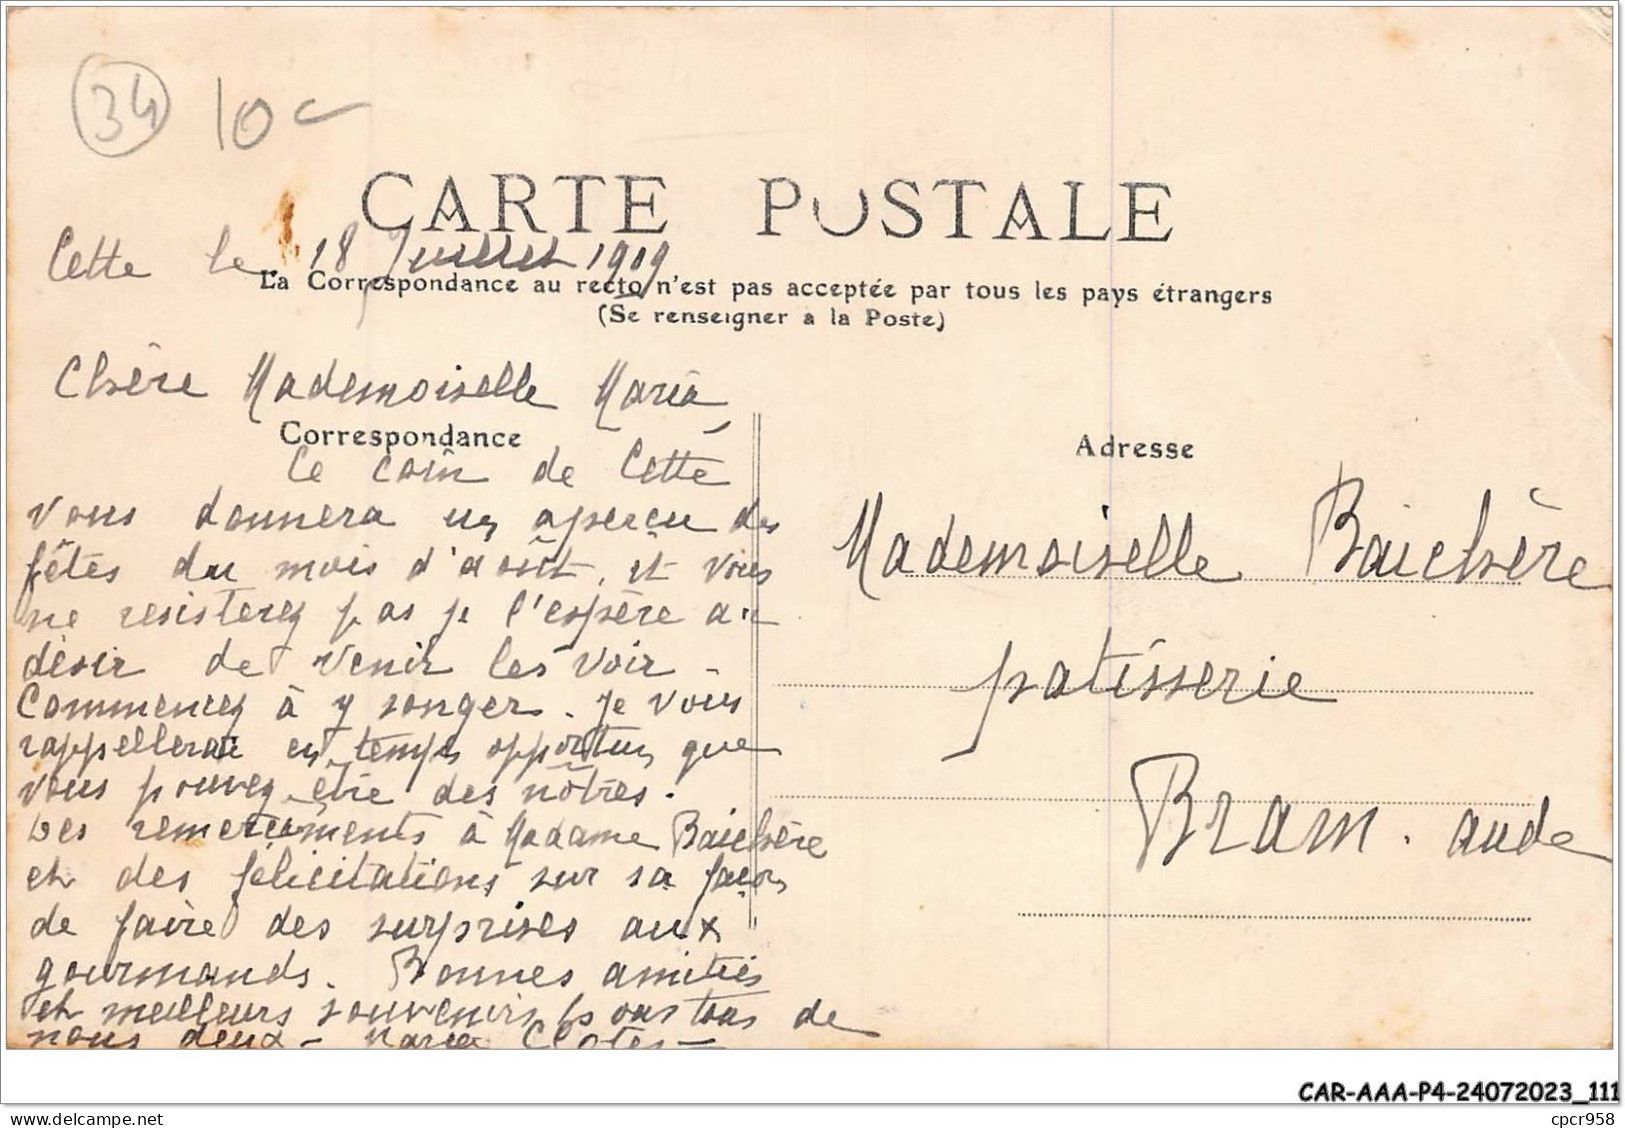 34 10
CARTE POSTALE
Cette le 18 Juillet 1909
La Correspondance au recto n'est pas acceptée par tous les pays étrangers
(Se renseigner à la Poste)
Chère Mademoiselle Maria,
Correspondance
Ce coin de Cette
vous donnera un aperçu des
fêtes du mois d'août, et vous
ne resisterez pas je l'espère au
désir de venir les voir -
Commencez à y songer. Je vous
rappellerai en temps opportun que
vous pouvez être des nôtres.
Des remerciements à Madame Baichère
et des félicitations sur sa façon
de faire des surprises aux
gourmands. Bonnes amitiés
et meilleurs souvenirs pour tous de
nous deux - Maria Clotes -
Adresse
Mademoiselle Baichère
patisserie
Bram. aude
CAR-AAA-P4-24072023_111
cpcr958